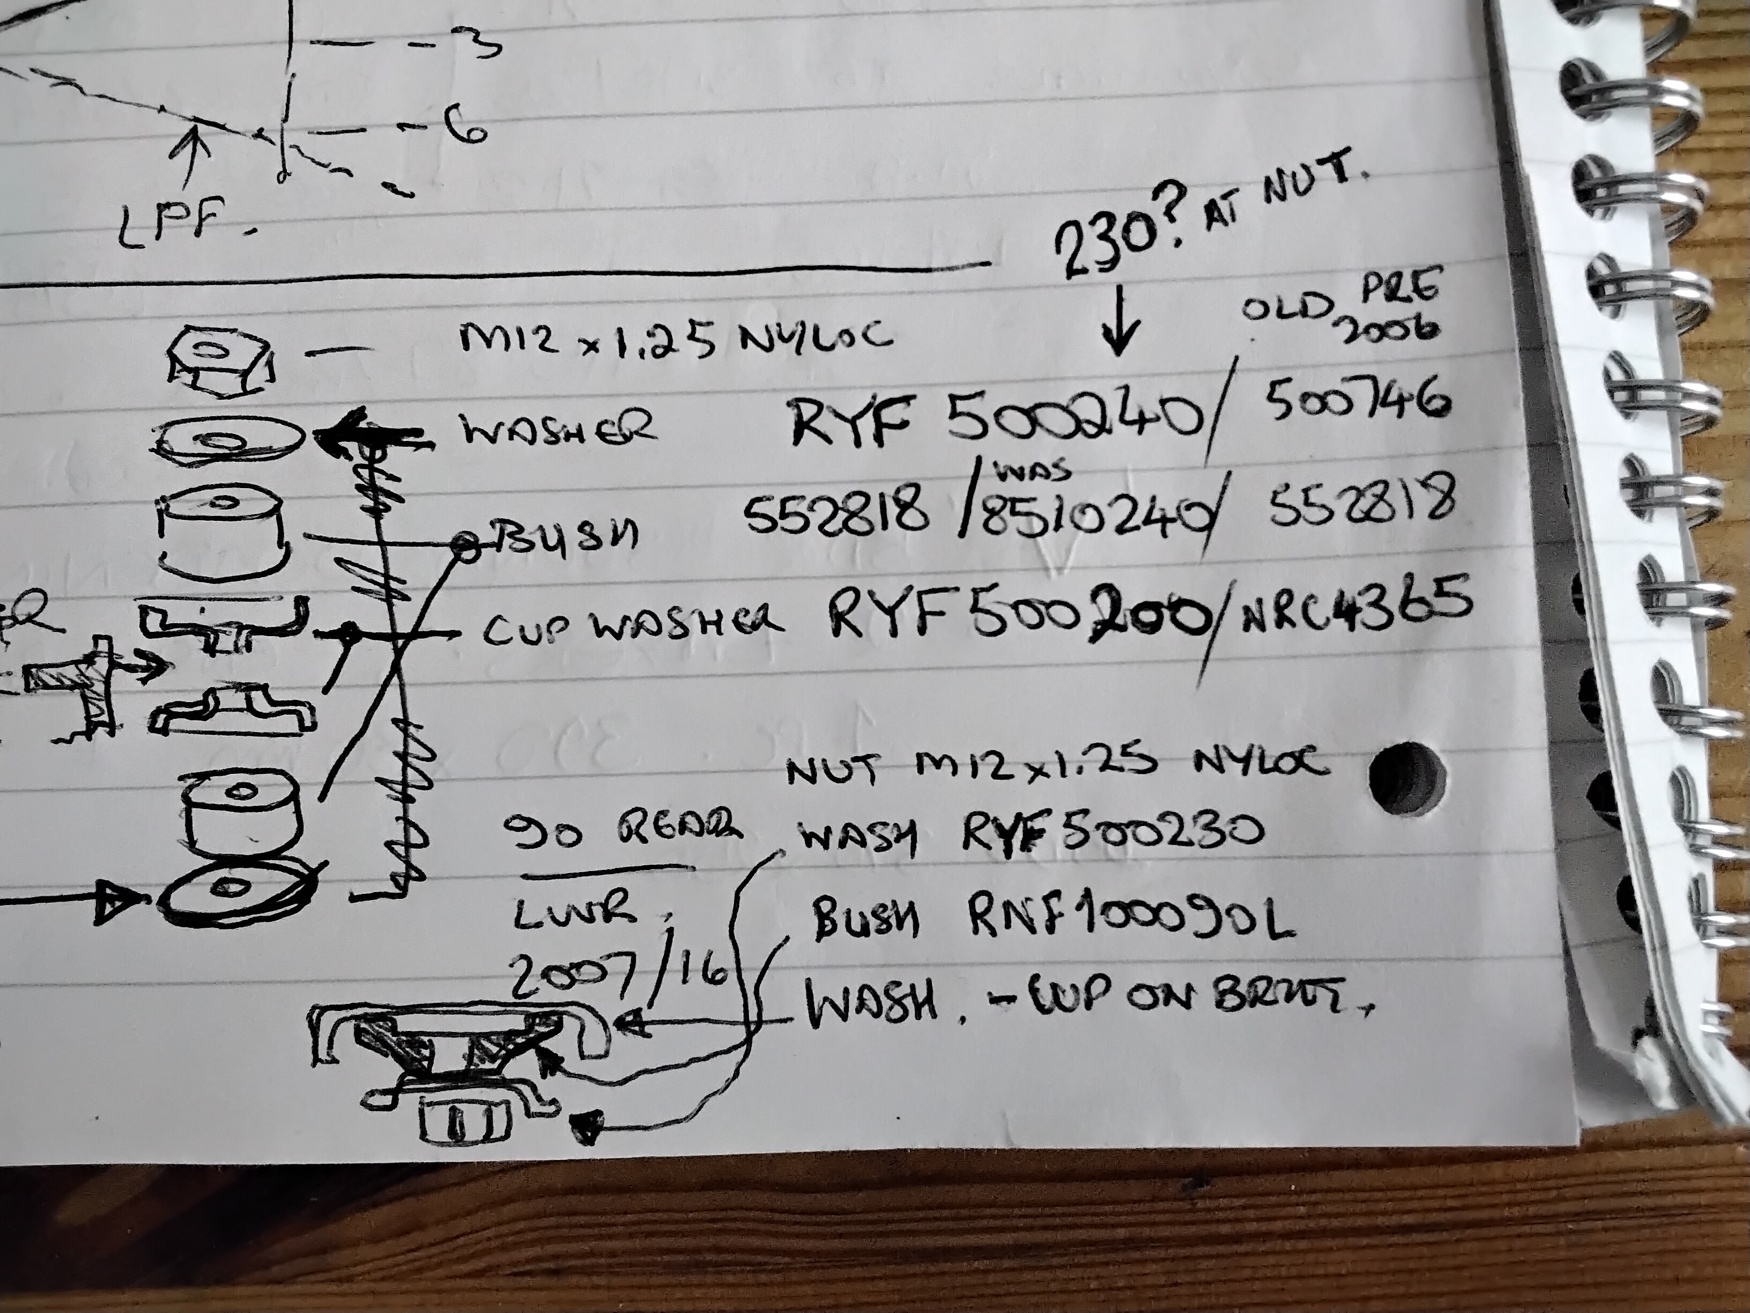 - 3
- 6
LPF.
230? AT NUT.
OLD PRE 2006
M12 x 1.25 NYLOC
WASHER RYF 500240/ 500746
WAS
BUSH 552818 /8510240/ 552818
CUP WASHER RYF 500200/NRC4365
NUT M12x1.25 NYLOC
90 REAR WASH RYF500230
LWR. BUSH RNF100090L
2007/16
WASH. - CUP ON BRKT.